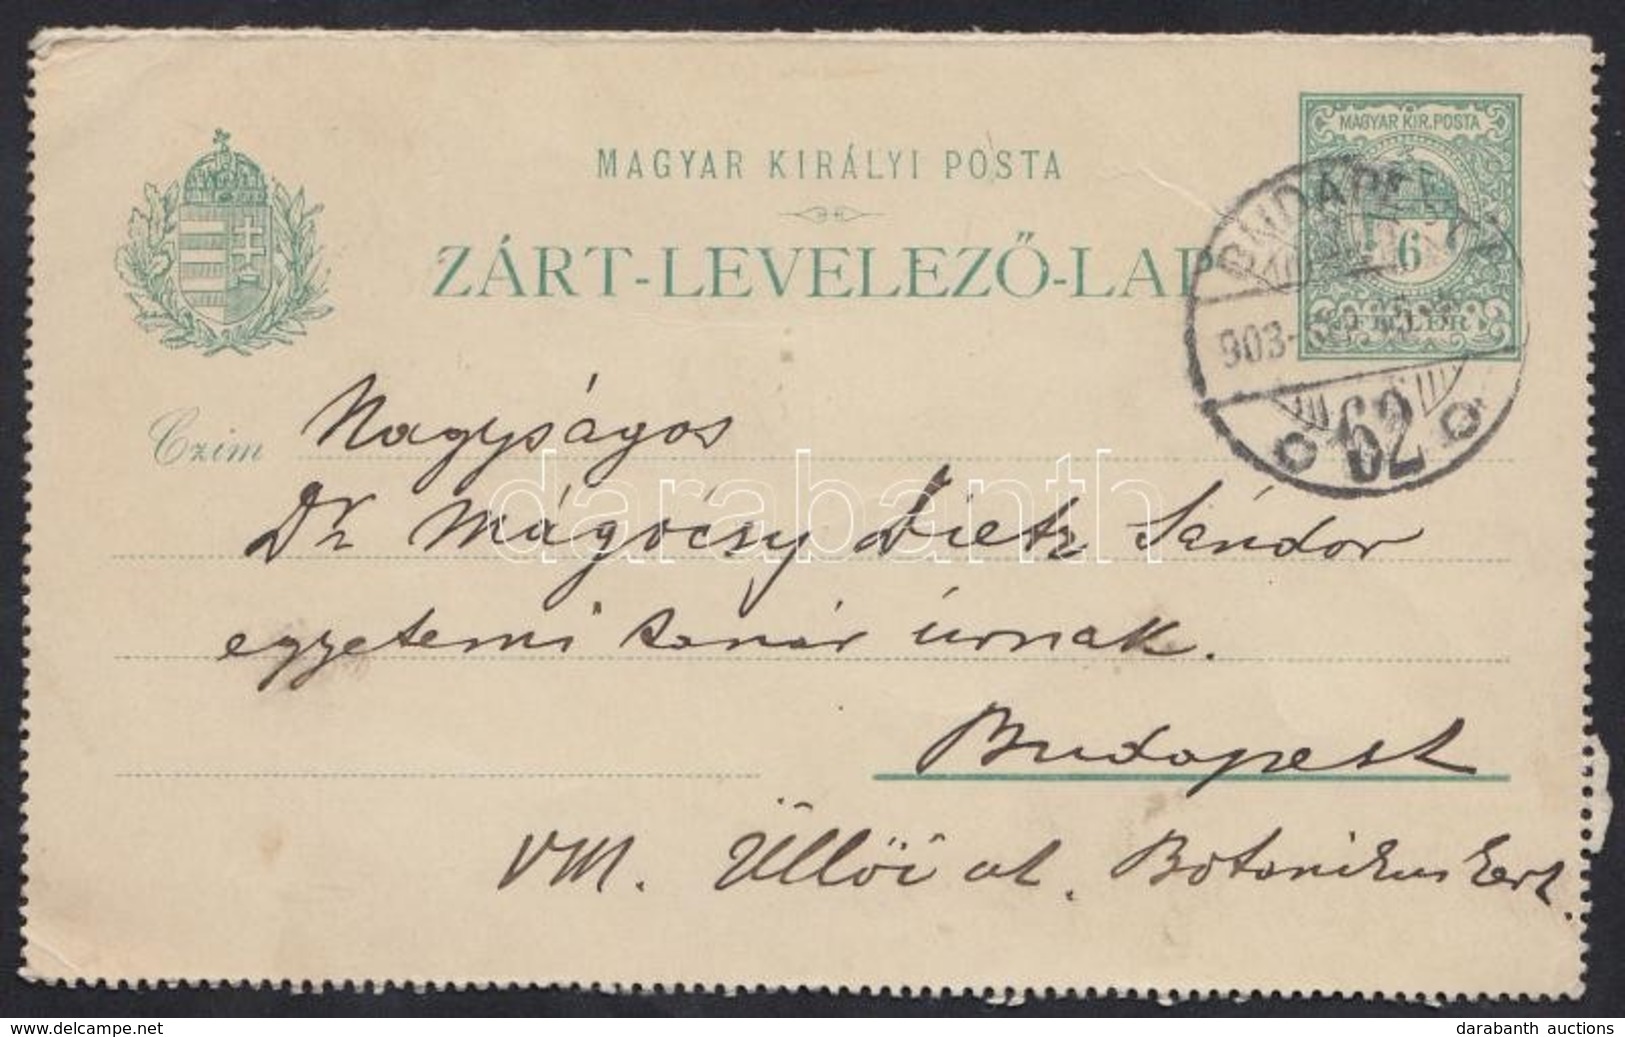 MAGYAR KIRÁLYI POSTA
ZÁRT-LEVELEZŐ-LAP
MAGYAR KIR. POSTA
6
FILLÉR
BUDAPEST
903
62
Czim Nagyságos
Dr Mágócsy Dietz Sándor
egyetemi tanár úrnak.
Budapest
VIII. Üllői út. Botanikus kert.
darabanth
delcampe.net
darabanth auctions